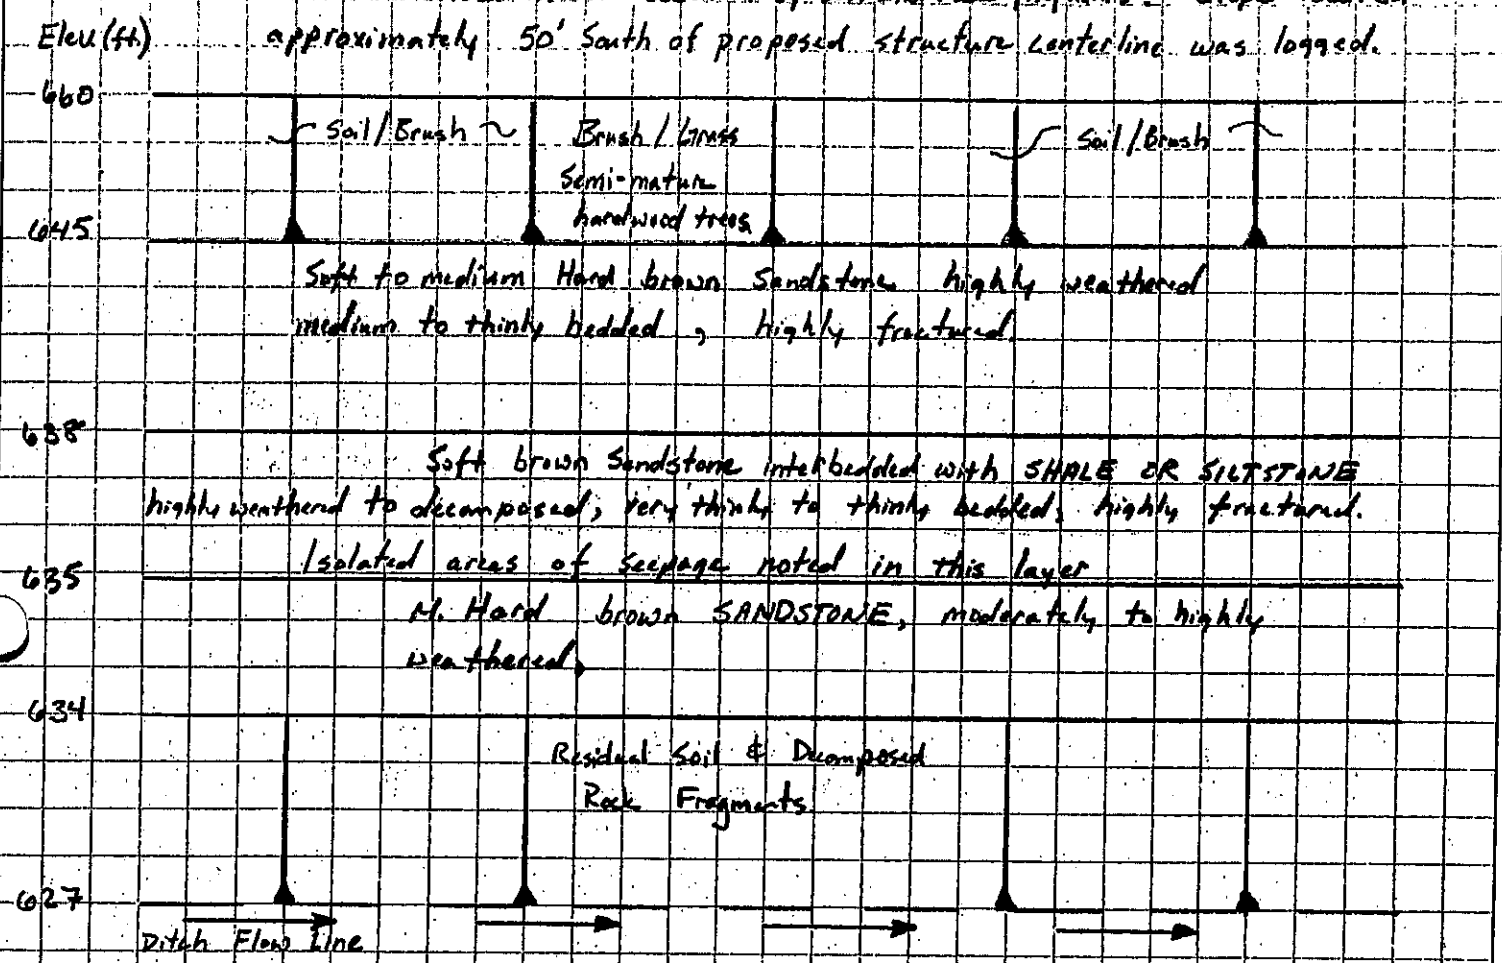 Elev (ft.) approximately 50' South of proposed structure centerline was logged.
660
Soil / Brush
Brush / Grass
Soil / Brush
Semi-mature
hardwood trees
645
Soft to medium Hard brown Sandstone highly weathered
medium to thinly bedded, highly fractured.
638
Soft brown Sandstone interbedded with SHALE OR SILTSTONE
highly weathered to decomposed, very thinly to thinly bedded, highly fractured.
Isolated areas of seepage noted in this layer
635
M. Hard brown SANDSTONE, moderately to highly
weathered,
634
Residual Soil & Decomposed
Rock Fragments
627
Ditch Flow Line